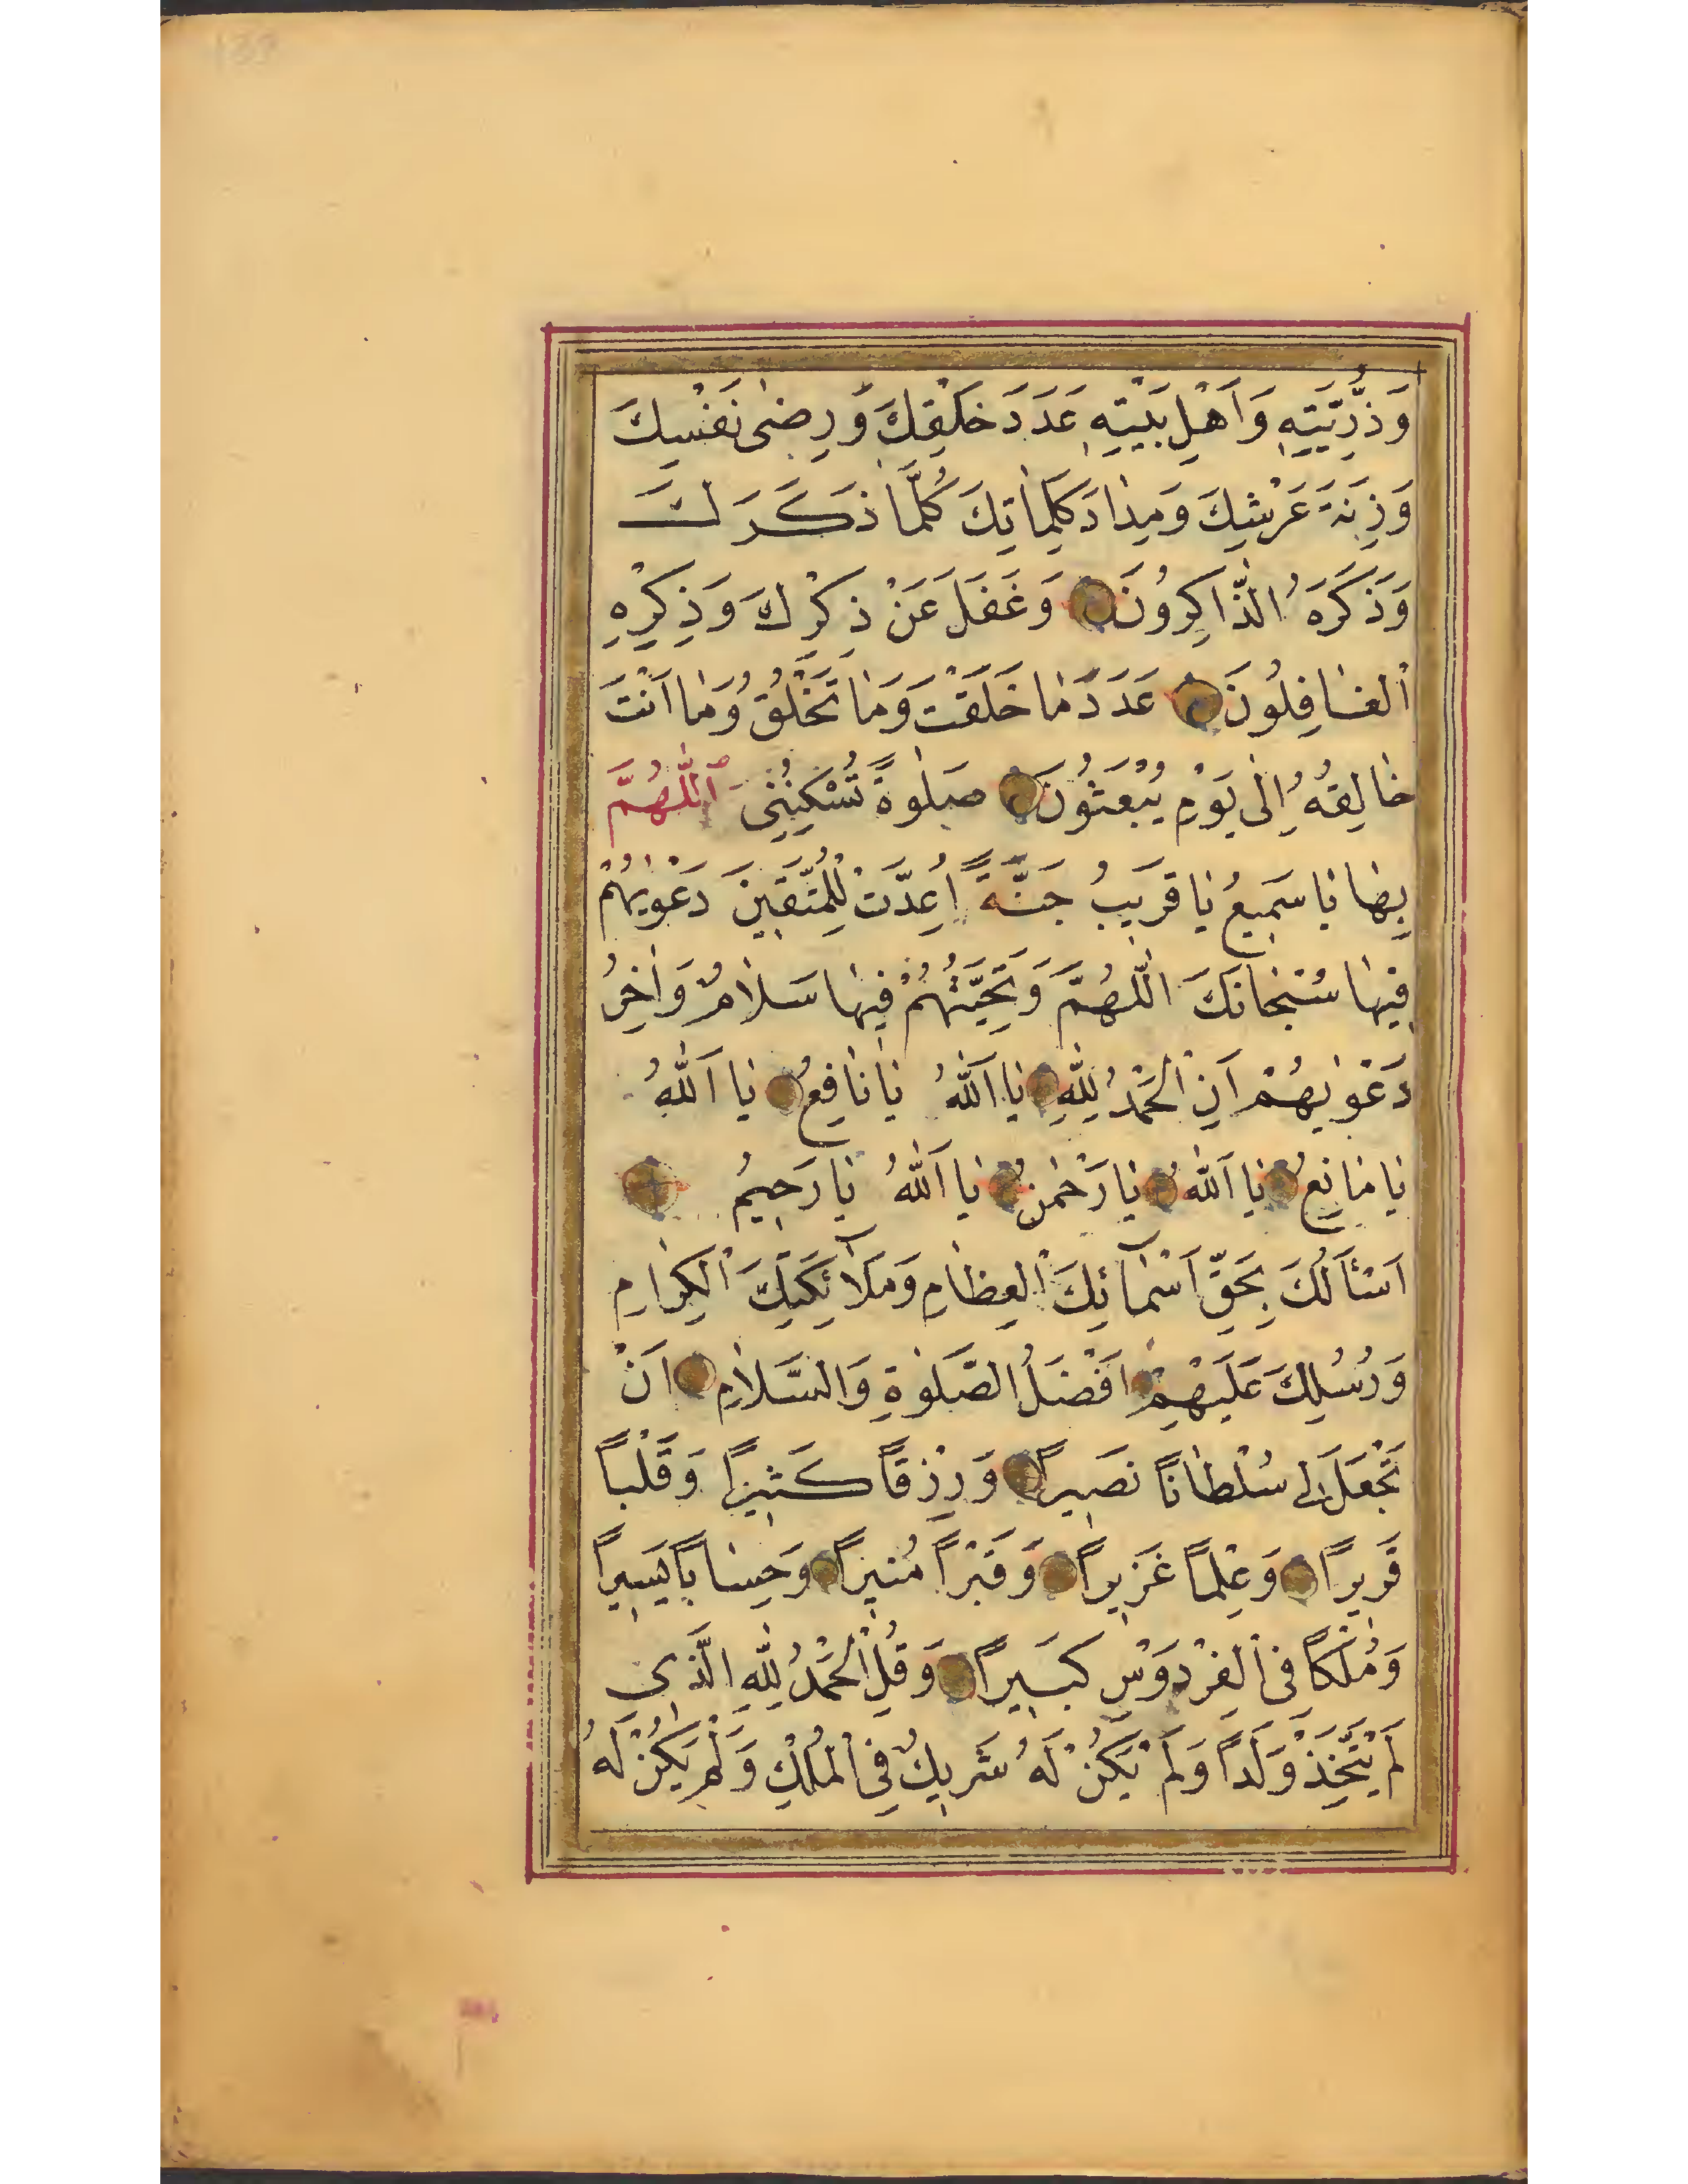 وَذُرِّيَّتِهِ وَاَهْلِ بَيْتِهِ عَدَدَ خَلْقِكَ وَرِضٰى نَفْسِكَ
وَزِنَةَ عَرْشِكَ وَمِدَادَ كَلِمَاتِكَ كُلَّمَا ذَكَرَكَ
وَذَكَرَهُ الذَّاكِرُونَ وَغَفَلَ عَنْ ذِكْرِكَ وَذِكْرِهِ
الْغَافِلُونَ عَدَدَ مَا خَلَقْتَ وَمَا تَخْلُقُ وَمَا اَنْتَ
خَالِقُهُ اِلٰى يَوْمِ يُبْعَثُونَ صَلٰوةً تُسْكِنُنِى اَللّٰهُمَّ
بِهَا يَا سَمِيعُ يَا قَرِيبُ جَنَّةً اُعِدَّتْ لِلْمُتَّقِينَ دَعْوٰيهُمْ
فِيهَا سُبْحَانَكَ اللّٰهُمَّ وَتَحِيَّتُهُمْ فِيهَا سَلَامٌ وَاٰخِرُ
دَعْوٰيهُمْ اَنِ الْحَمْدُ لِلّٰهِ يَا اَللّٰهُ يَا نَافِعُ يَا اَللّٰهُ
يَا مَانِعُ يَا اَللّٰهُ يَا رَحْمٰنُ يَا اَللّٰهُ يَا رَحِيمُ
اَسْئَالُكَ بِحَقِّ اَسْمَآئِكَ الْعِظَامِ وَمَلَآئِكَتِكَ الْكِرَامِ
وَرُسُلِكَ عَلَيْهِمْ اَفْضَلُ الصَّلٰوةِ وَالسَّلَامِ اَنْ
تَجْعَلَ لِى سُلْطَانًا نَصِيرًا وَرِزْقًا كَثِيرًا وَقَلْبًا
قَرِيرًا وَعِلْمًا غَزِيرًا وَقَبْرًا مُنِيرًا وَحِسَابًا يَسِيرًا
وَمُلْكًا فِى الْفِرْدَوْسِ كَبِيرًا وَقُلِ الْحَمْدُ لِلّٰهِ الَّذِى
لَمْ يَتَّخِذْ وَلَدًا وَلَمْ يَكُنْ لَهُ شَرِيكٌ فِى الْمُلْكِ وَلَمْ يَكُنْ لَهُ